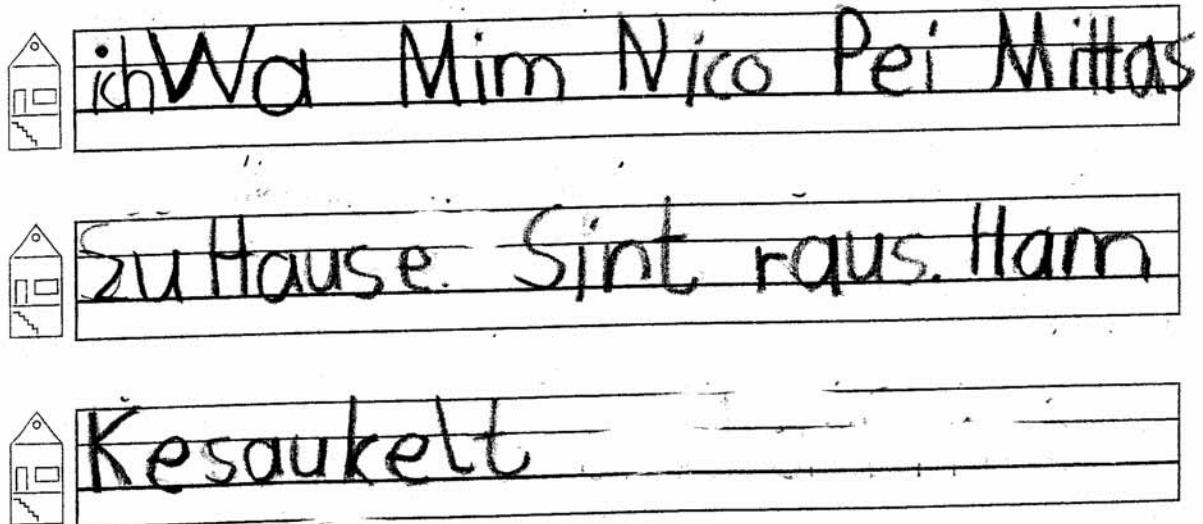 ich Wa Mim Nico Pei Mittas
Zu Hause. Sint raus. Ham
Kesaukelt